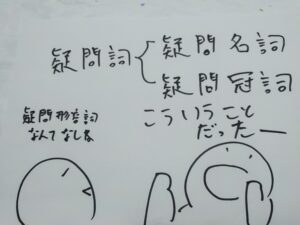 疑問詞
疑問名詞
疑問冠詞
こういうこと
だったー
疑問形容詞
なんてなしな